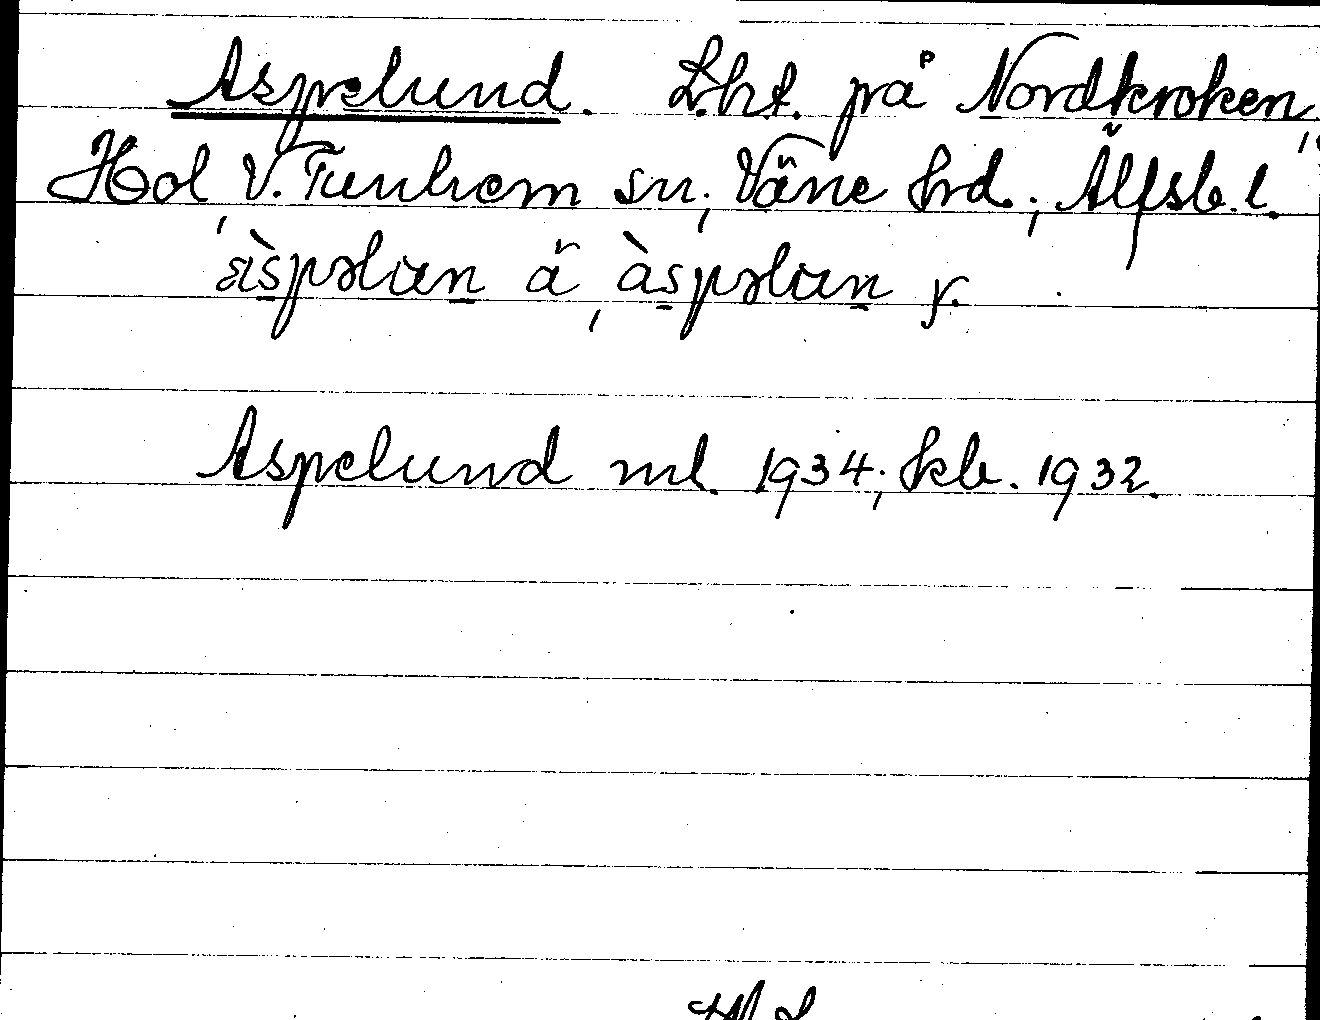 Aspelund. Lht. på Nordkroken,
Hol, V. Tunhem sn, Väne hrd., Älfsb. l.
àspəlun ä, àspəlun y.
Aspelund ml. 1934, kb. 1932.